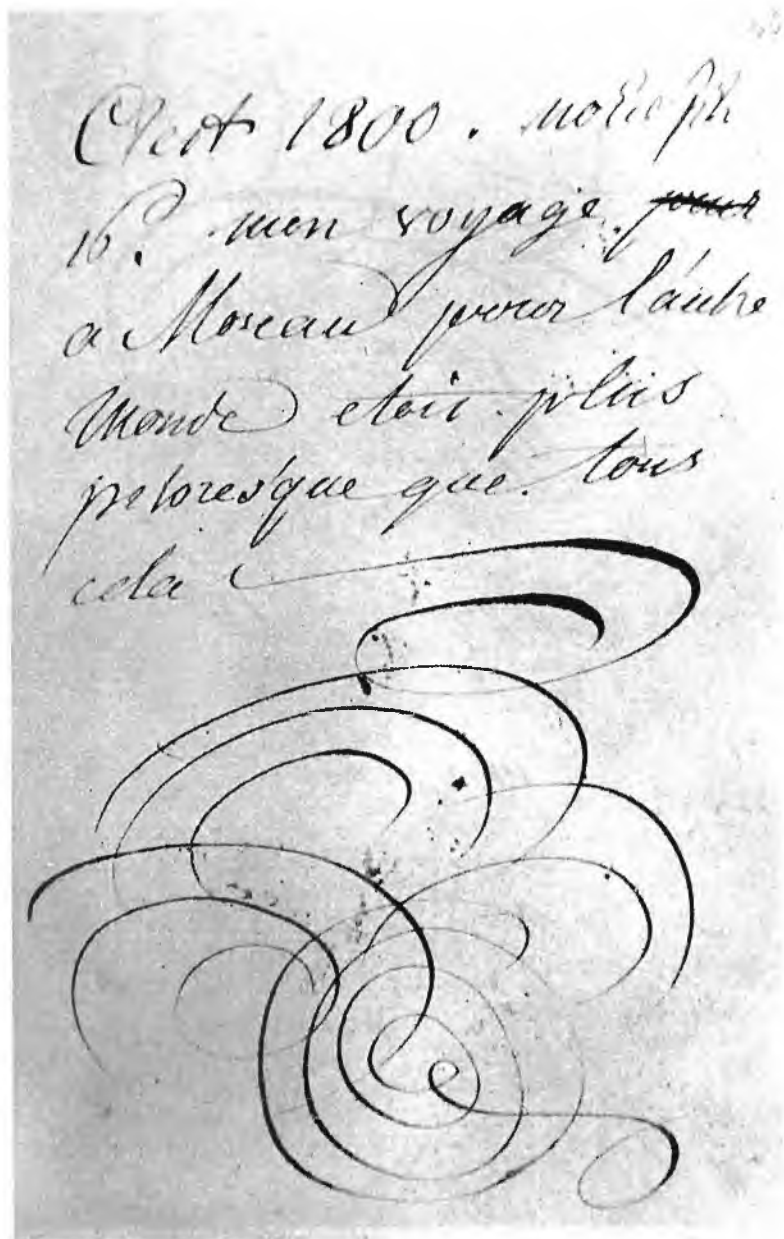 1800.
16. mon voyage. pour
a Moreau pour l'autre
monde etoit plus
pitoresque que tous
cela